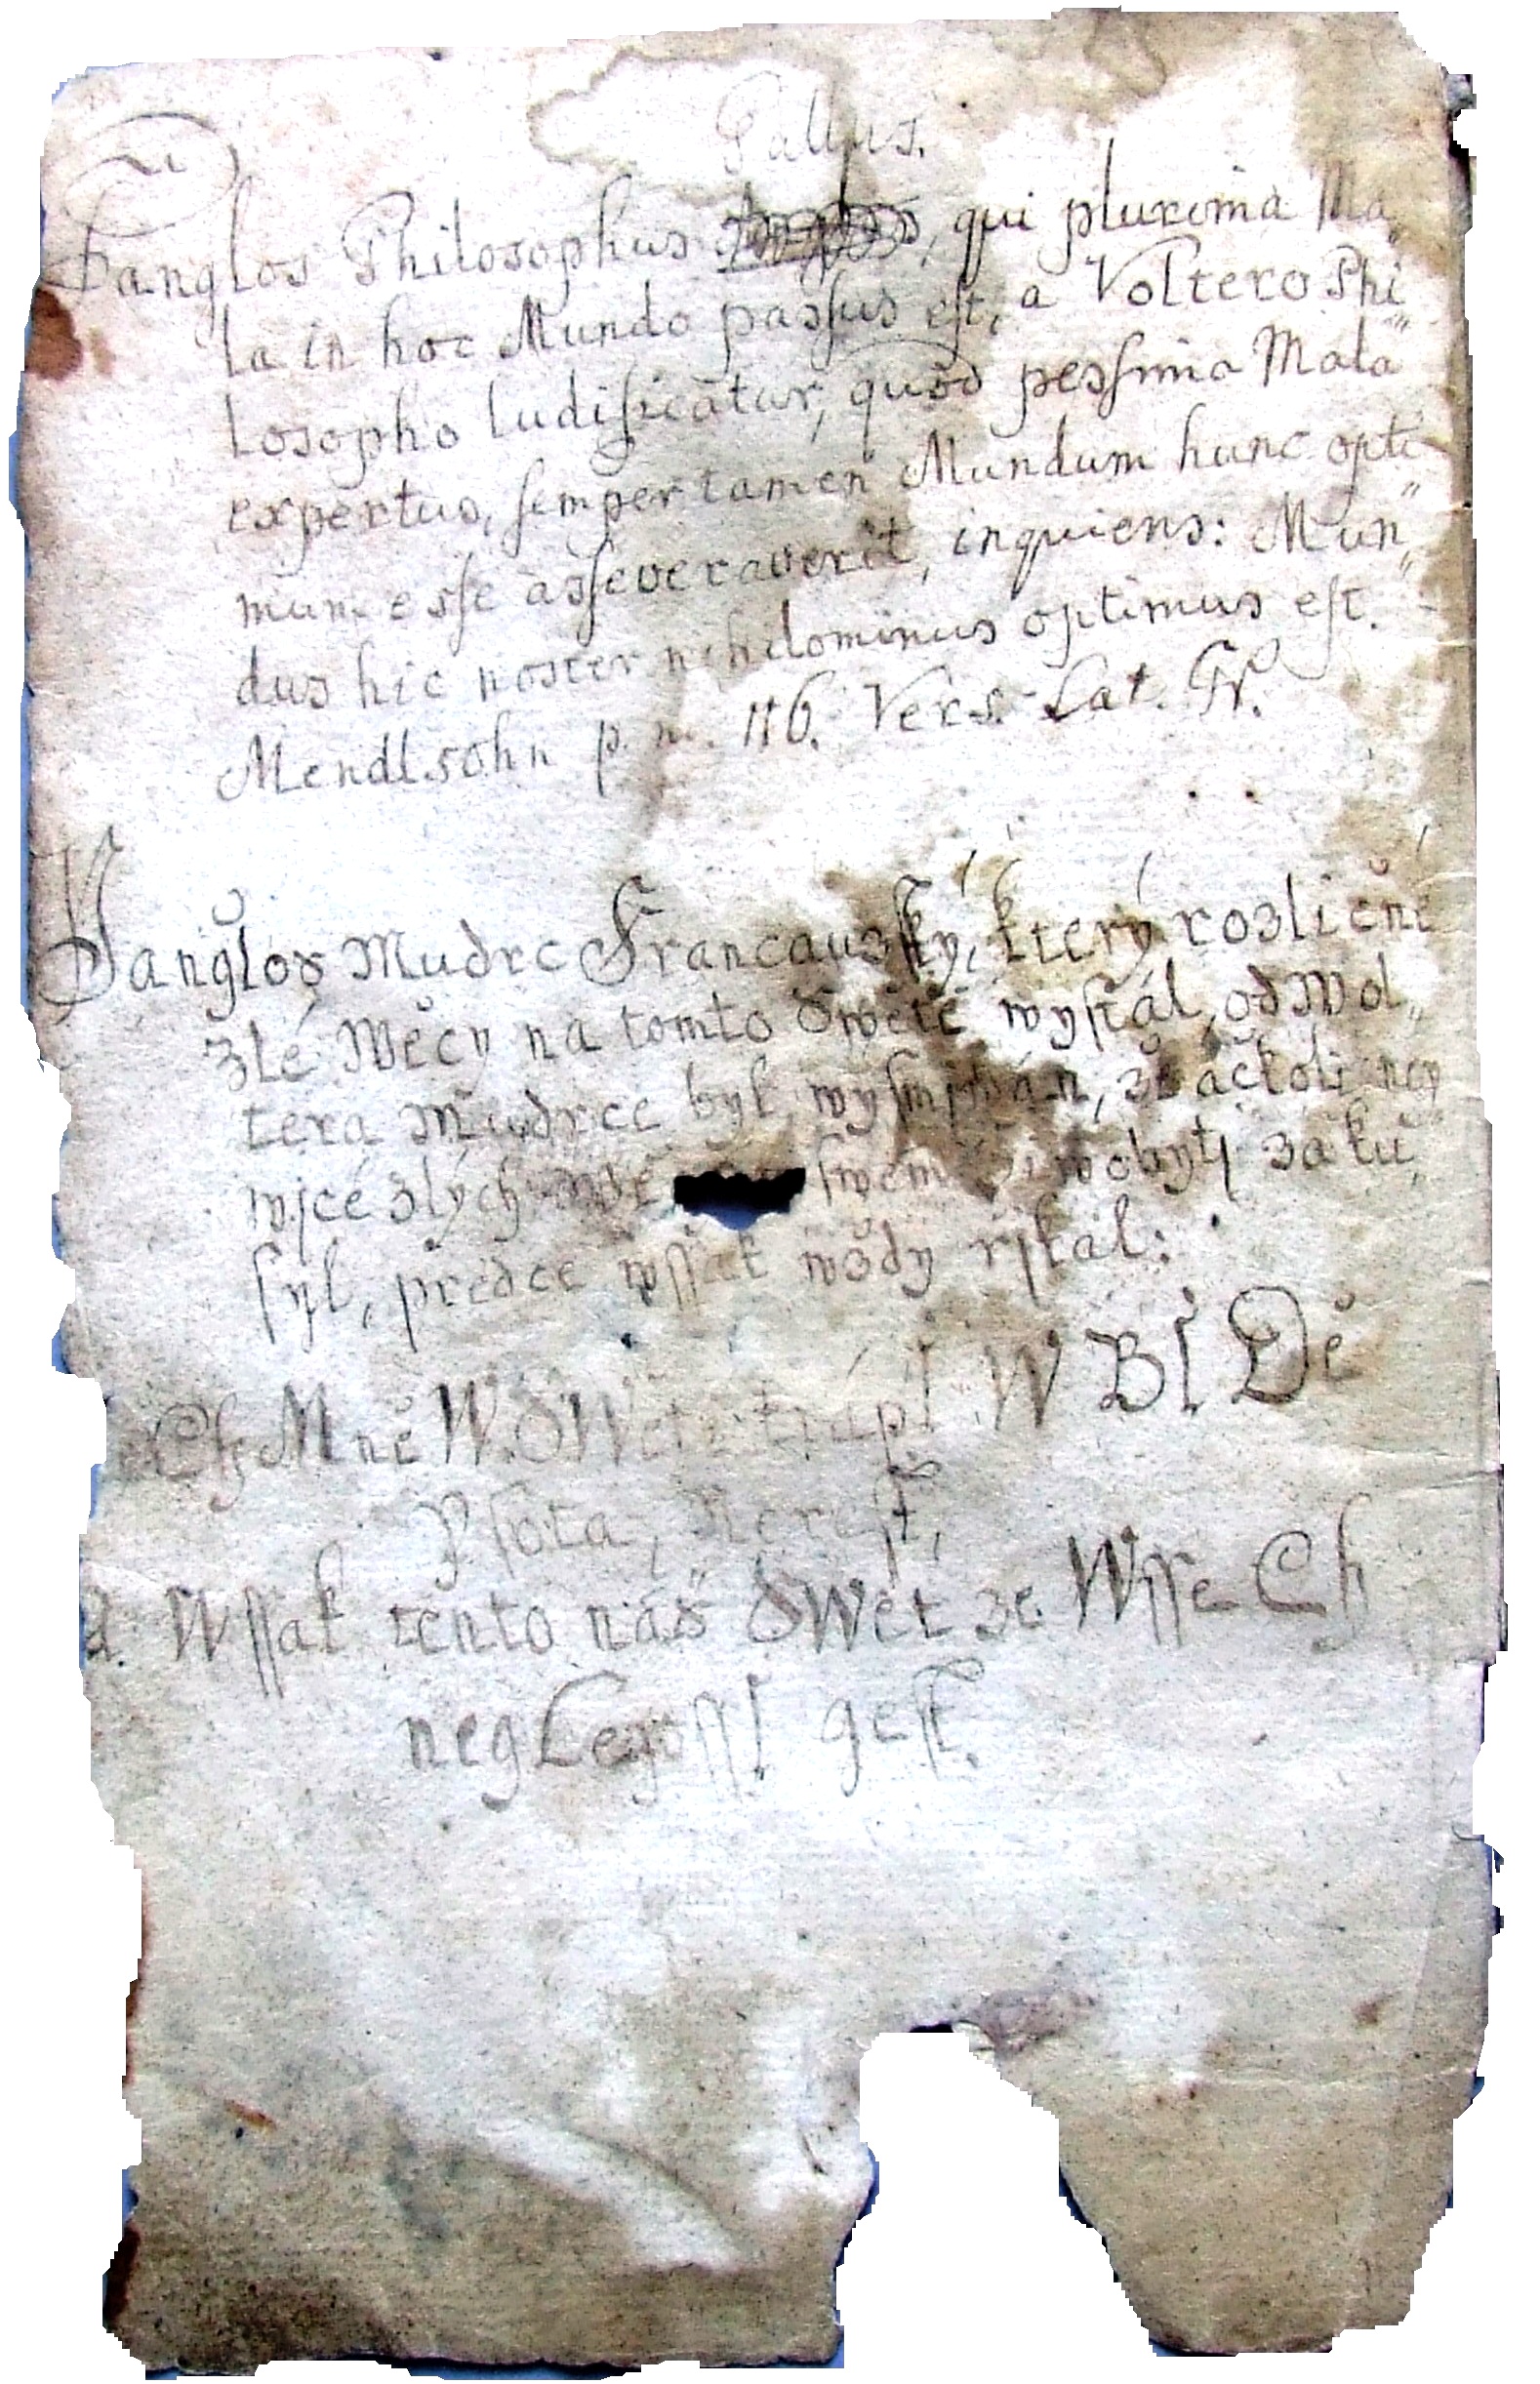 Gallus.
Panglos Philosophus, qui plurima Ma„
la in hoc Mundo passus est, a Voltero Phi„
losopho ludificatur, quod pessima Mala
expertus, semper tamen Mundum hunc opti„
mum esse asseveraverit, inquiens: Mun„
dus hic noster nihilominus optimus est.
Mendlsohn p. m. 116. Vers. Lat. Fr.
Panglos Mudrc Francauzský, který rozličné
zlé Wěcy na tomto Swětě wystál, od Wol„
tera Mudrce byl wysmjwán, že ačkoli ney
wjcé zlých wě swém žiwobytj zaku„
syl, předce wssak wždy řjkal:
Ch Mně W Swětě trápj W Bj Dě
Psota, Neřest,
A. Wssak tento náš Swět ze Wsse Ch
neglepssj gest.